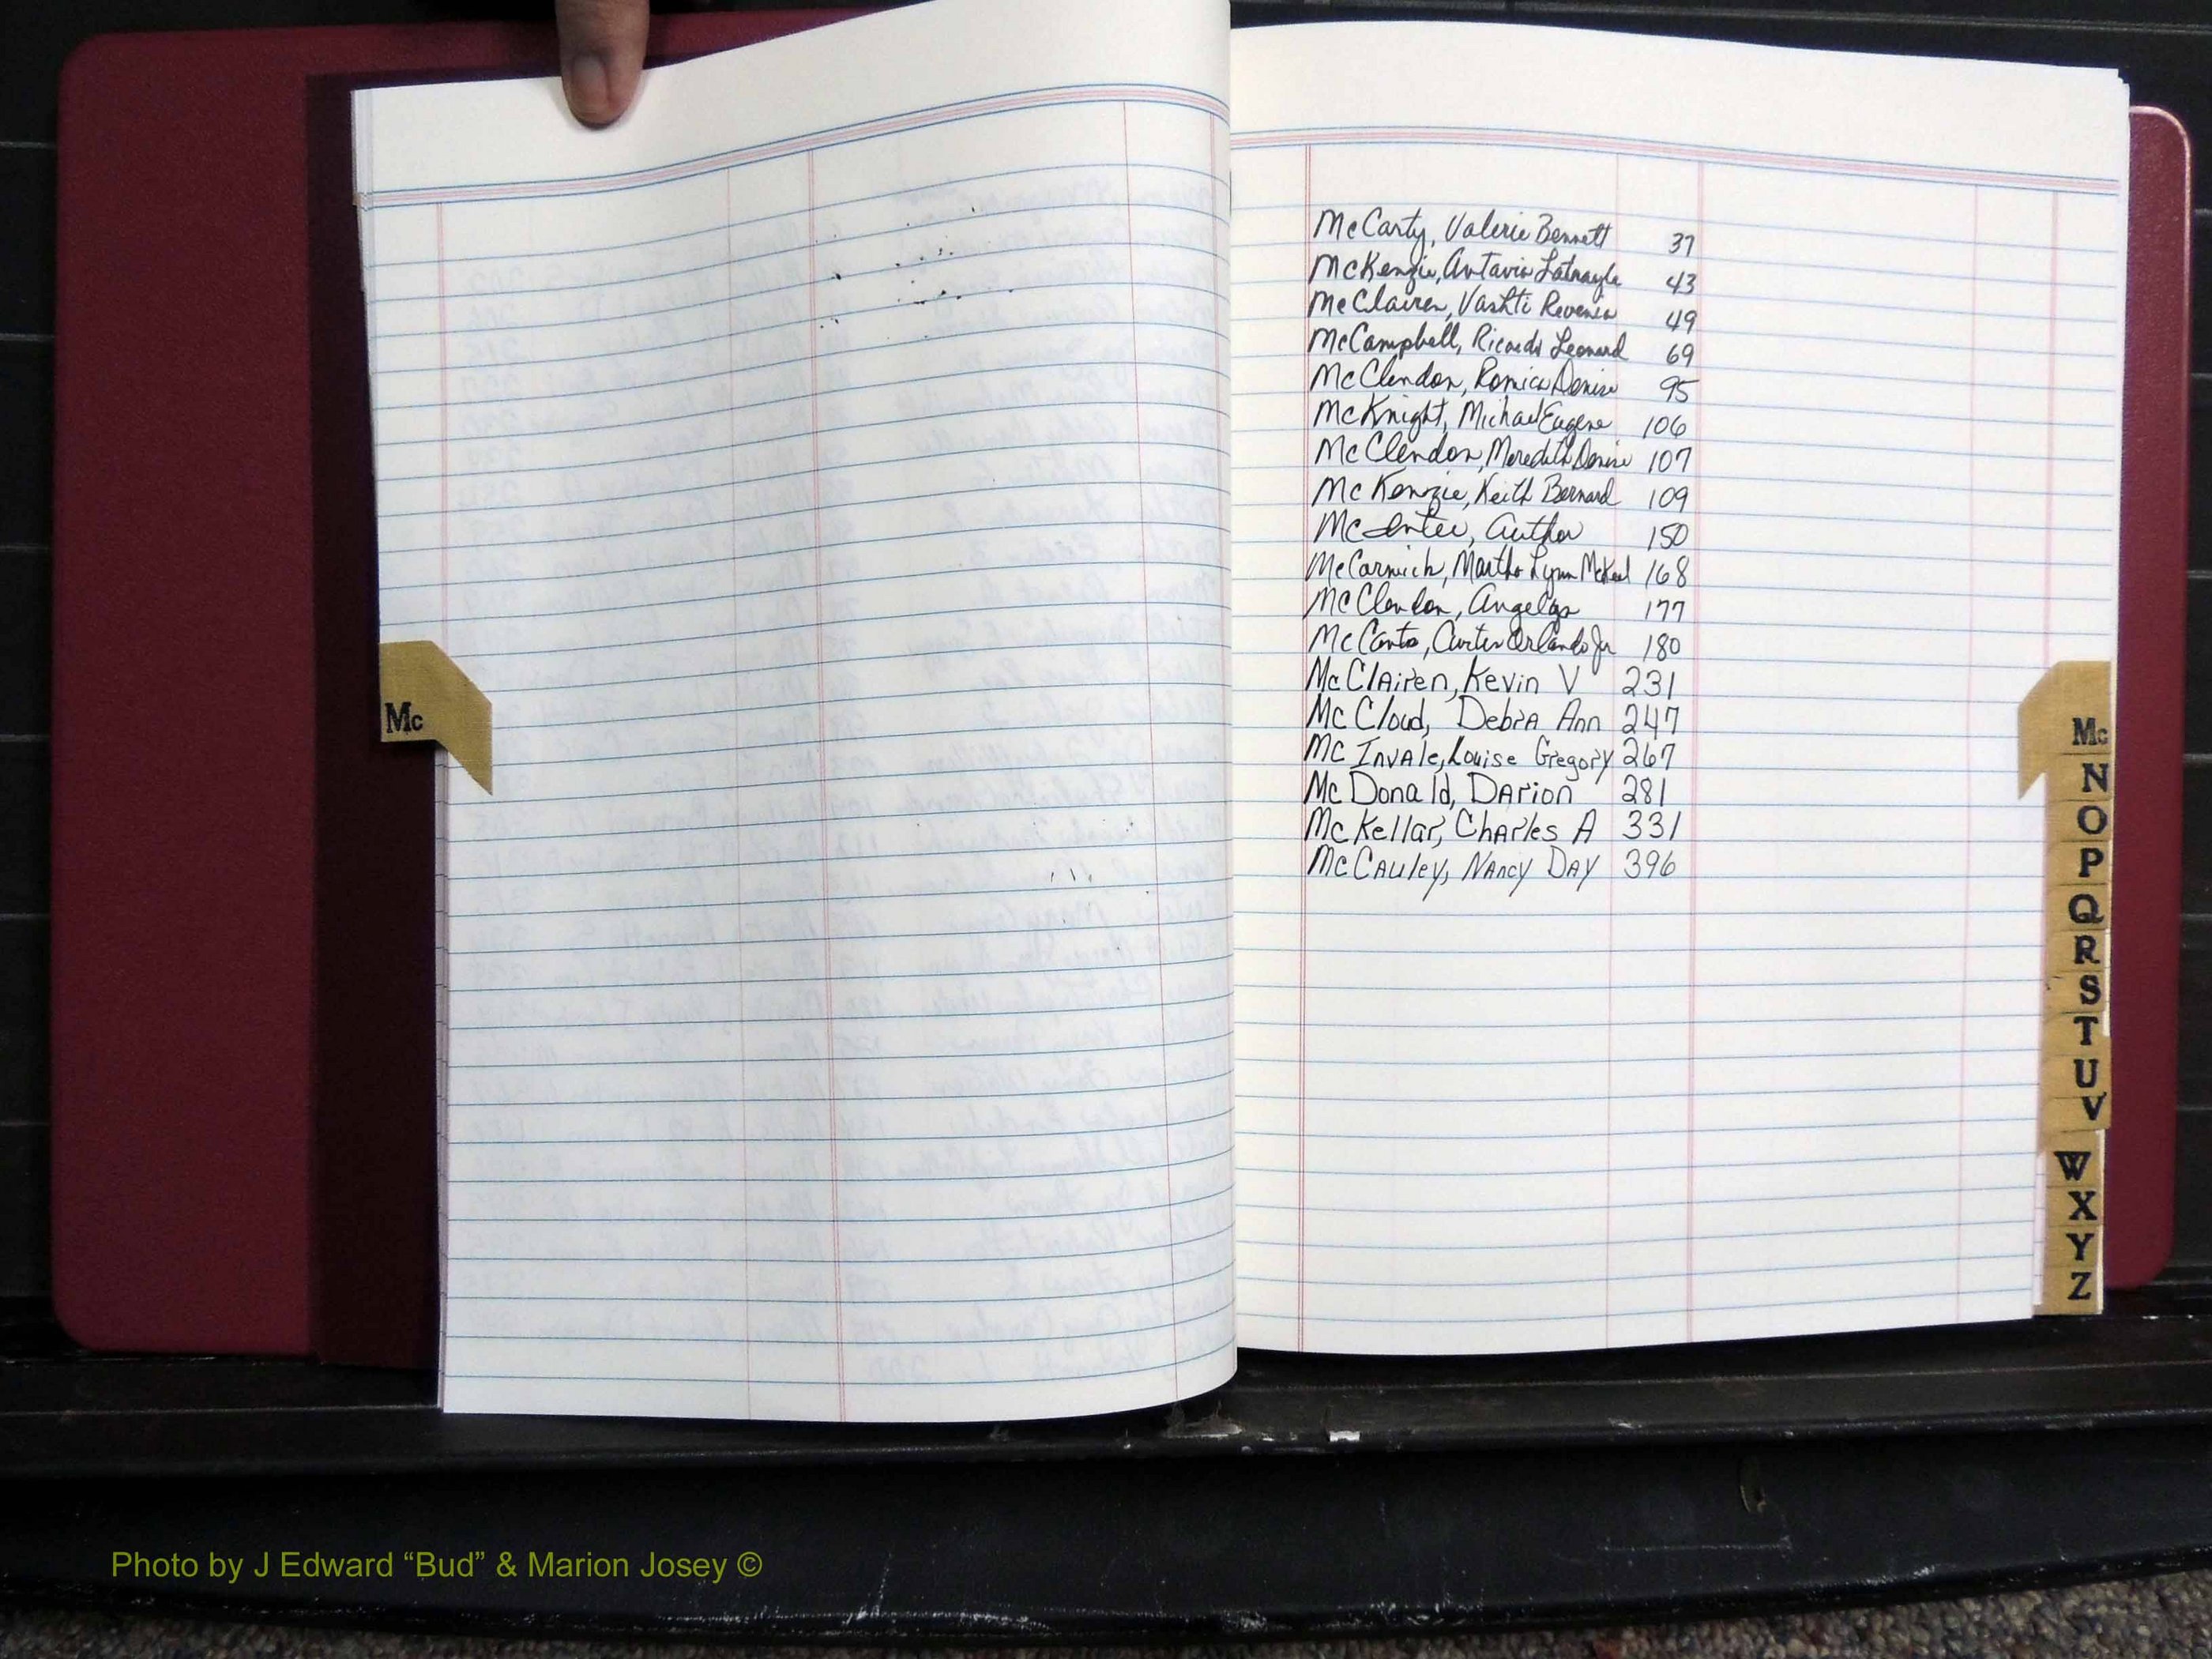 McCarty, Valerie Bennett 37
McKenzie, Antavia 43
McClairen, Vashti Revenia 49
McCampbell, Ricardo Leonard 69
McClendon, Romica Denise 95
McKnight, Michael Eugene 106
McClendon, Meredith Denise 107
McKenzie, Keith Bernard 109
McEntee, Author 150
McCormick, Martha Lynn 168
McClendon, Angelyn 177
McCants, Curtis Orlando Jr 180
McClAiren, Kevin V 231
Mc Cloud, Debra Ann 247
Mc InvAle, Louise Gregory 267
Mc Donald, DArion 281
Mc Kellar, ChArles A 331
McCAuley, NAncy DAy 396
Mc
Mc
N
O
P
Q
R
S
T
U
V
W
X
Y
Z
Photo by J Edward “Bud” & Marion Josey ©